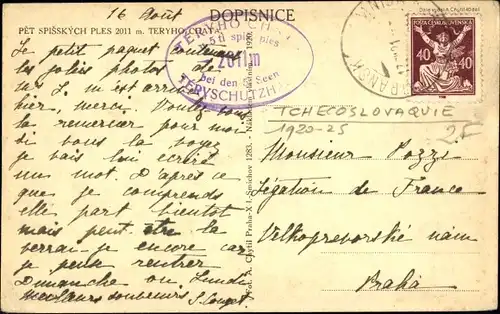 16 Août
DOPISNICE
PĚT SPIŠSKÝCH PLES 2011 m. TERYHO CHATA
TERYHO CH
5 ti spiš. ples
2011 m
bei den 5 Seen
TERYSCHUTZH
POŠTA ČESKOSLOVENSKÁ
40 40
TCHECOSLOVAQUIE
1920-25
Le petit paquet contenant
les jolies photos de
est arrivé
hier, merci. Voulez vous
la remercier pour moi
si vous la voyez
je vais lui écrire
un mot. D'après ce
que je comprends
elle part bientôt
mais peut être la
verrai-je encore car
je peux rentrer
Dimanche ou Lundi
meilleurs souvenirs
Fot. A. Chytil Praha-XI. Smíchov 1283.
Monsieur Pozzi
Légation de France
Velkoprevorské nám
Praha